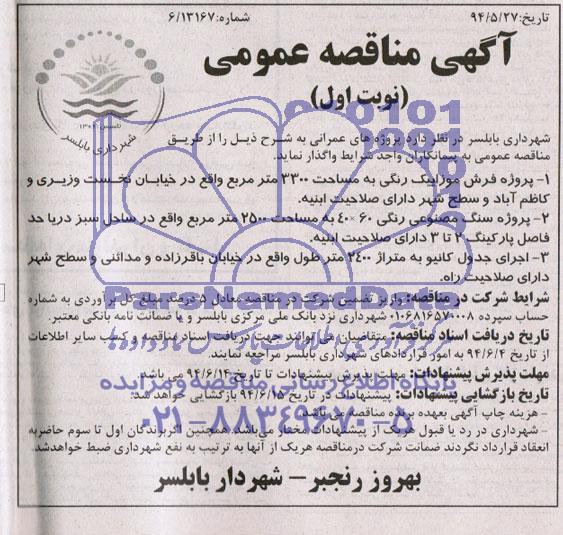 تاریخ: ۹۴/۵/۲۷
شماره: ۶/۱۳۱۶۷
آگهی مناقصه عمومی
(نوبت اول)
تاسیس ۱۳۰۴
شهرداری بابلسر
شهرداری بابلسر در نظر دارد پروژه های عمرانی به شرح ذیل را از طریق
مناقصه عمومی به پیمانکاران واجد شرایط واگذار نماید.
۱- پروژه فرش موزاییک رنگی به مساحت ۳۳۰۰ متر مربع واقع در خیابان نخست وزیری و
کاظم آباد و سطح شهر دارای صلاحیت ابنیه.
۲- پروژه سنگ مصنوعی رنگی ۶۰×۴۰ به مساحت ۲۵۰۰ متر مربع واقع در ساحل سبز دریا حد
فاصل پارکینگ ۲ تا ۳ دارای صلاحیت ابنیه.
۳- اجرای جدول کانیو به متراژ ۲۴۰۰ متر طول واقع در خیابان باقرزاده و مدائنی و سطح شهر
دارای صلاحیت راه.
شرایط شرکت در مناقصه: واریز تضمین شرکت در مناقصه معادل ۵ درصد مبلغ کل برآوردی به شماره
حساب سپرده ۰۱۰۶۸۱۶۵۷۰۰۰۸ شهرداری نزد بانک ملی مرکزی بابلسر و یا ضمانت نامه بانکی معتبر.
تاریخ دریافت اسناد مناقصه: متقاضیان می توانند جهت دریافت اسناد مناقصه و کسب سایر اطلاعات
از تاریخ ۹۴/۶/۴ به امور قراردادهای شهرداری بابلسر مراجعه نمایند.
مهلت پذیرش پیشنهادات: مهلت پذیرش پیشنهادات تا تاریخ ۹۴/۶/۱۴ می باشد.
تاریخ بازگشایی پیشنهادات: پیشنهادات در تاریخ ۹۴/۶/۱۵ بازگشایی خواهد شد.
- هزینه چاپ آگهی بعهده برنده مناقصه می باشد.
- شهرداری در رد یا قبول هریک از پیشنهادات مختار می‌باشد. همچنین اگر برندگان اول تا سوم حاضر به
انعقاد قرارداد نگردند ضمانت شرکت در مناقصه هریک از آنها به ترتیب به نفع شهرداری ضبط خواهد شد.
بهروز رنجبر – شهردار بابلسر
ParsNamadData
پایگاه اطلاع رسانی مناقصه و مزایده
۰۲۱-۸۸۳۴۹۶۷۰-۵